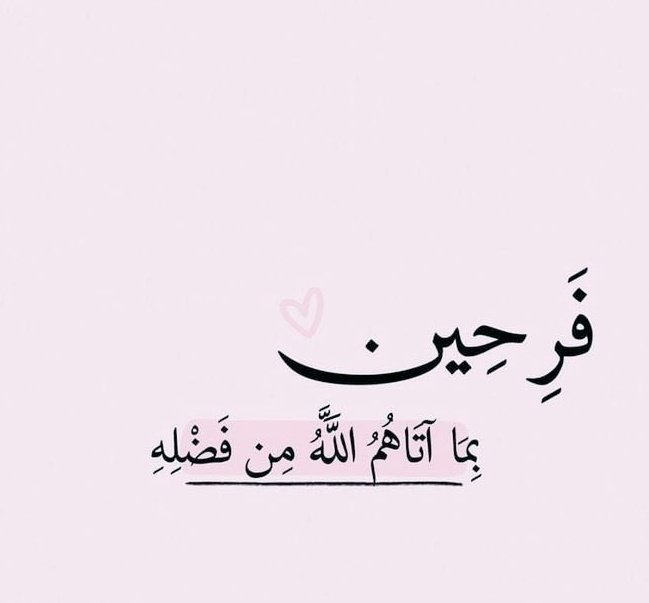 فَرِحِين
بِمَا آتَاهُمُ اللَّهُ مِن فَضْلِهِ